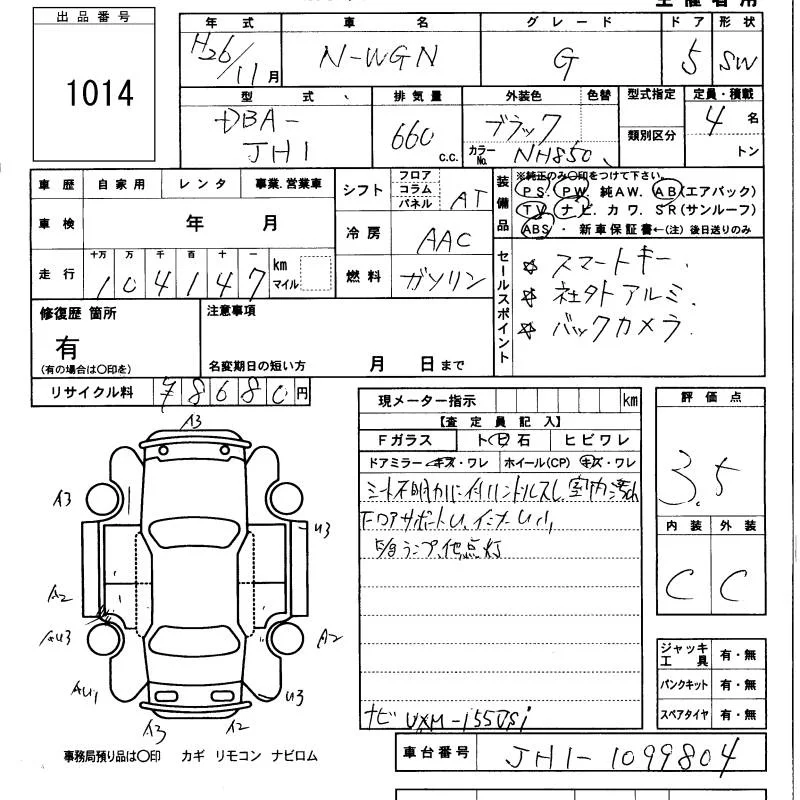 主催者用
出品番号
1014
年式
H26/11月
車名
N-WGN
グレード
G
ドア
5
形状
SW
型式
DBA-
JH1
排気量
660
C.C.
外装色
色替
ブラック
カラーNo.
NH850
型式指定
類別区分
定員・積載
4名
トン
車歴
自家用
レンタ
事業.営業車
車検
年 月
走行
十万 万 千 百 十 一
104147
km
マイル
シフト
フロア
コラム
パネル
AT
冷房
AAC
燃料
ガソリン
装備品
※純正のみ○印をつけて下さい。
PS. PW. 純AW. AB(エアバック)
TV. ナビ. カワ. SR(サンルーフ)
ABS ・ 新車保証書←(注)後日送りのみ
セールスポイント
☆ スマートキー.
☆ 社外アルミ.
☆ バックカメラ
修復歴 箇所
有
(有の場合は○印を)
注意事項
名変期日の短い方 月 日まで
リサイクル料
78680円
現メーター指示
km
【査定員記入】
Fガラス
ト
石
ヒビワレ
ドアミラー キズ・ワレ
ホイール(CP) キズ・ワレ
室内汚れ
ナビ VXM-155VSi
評価点
3.5
内装
外装
C
C
ジャッキ
工具
有・無
パンクキット
有・無
スペアタイヤ
有・無
車台番号
JH1-1099804
A3
A3
U3
A2
AU3
A2
AU1
U3
A3
A2
事務局預り品は○印 カギ リモコン ナビロム